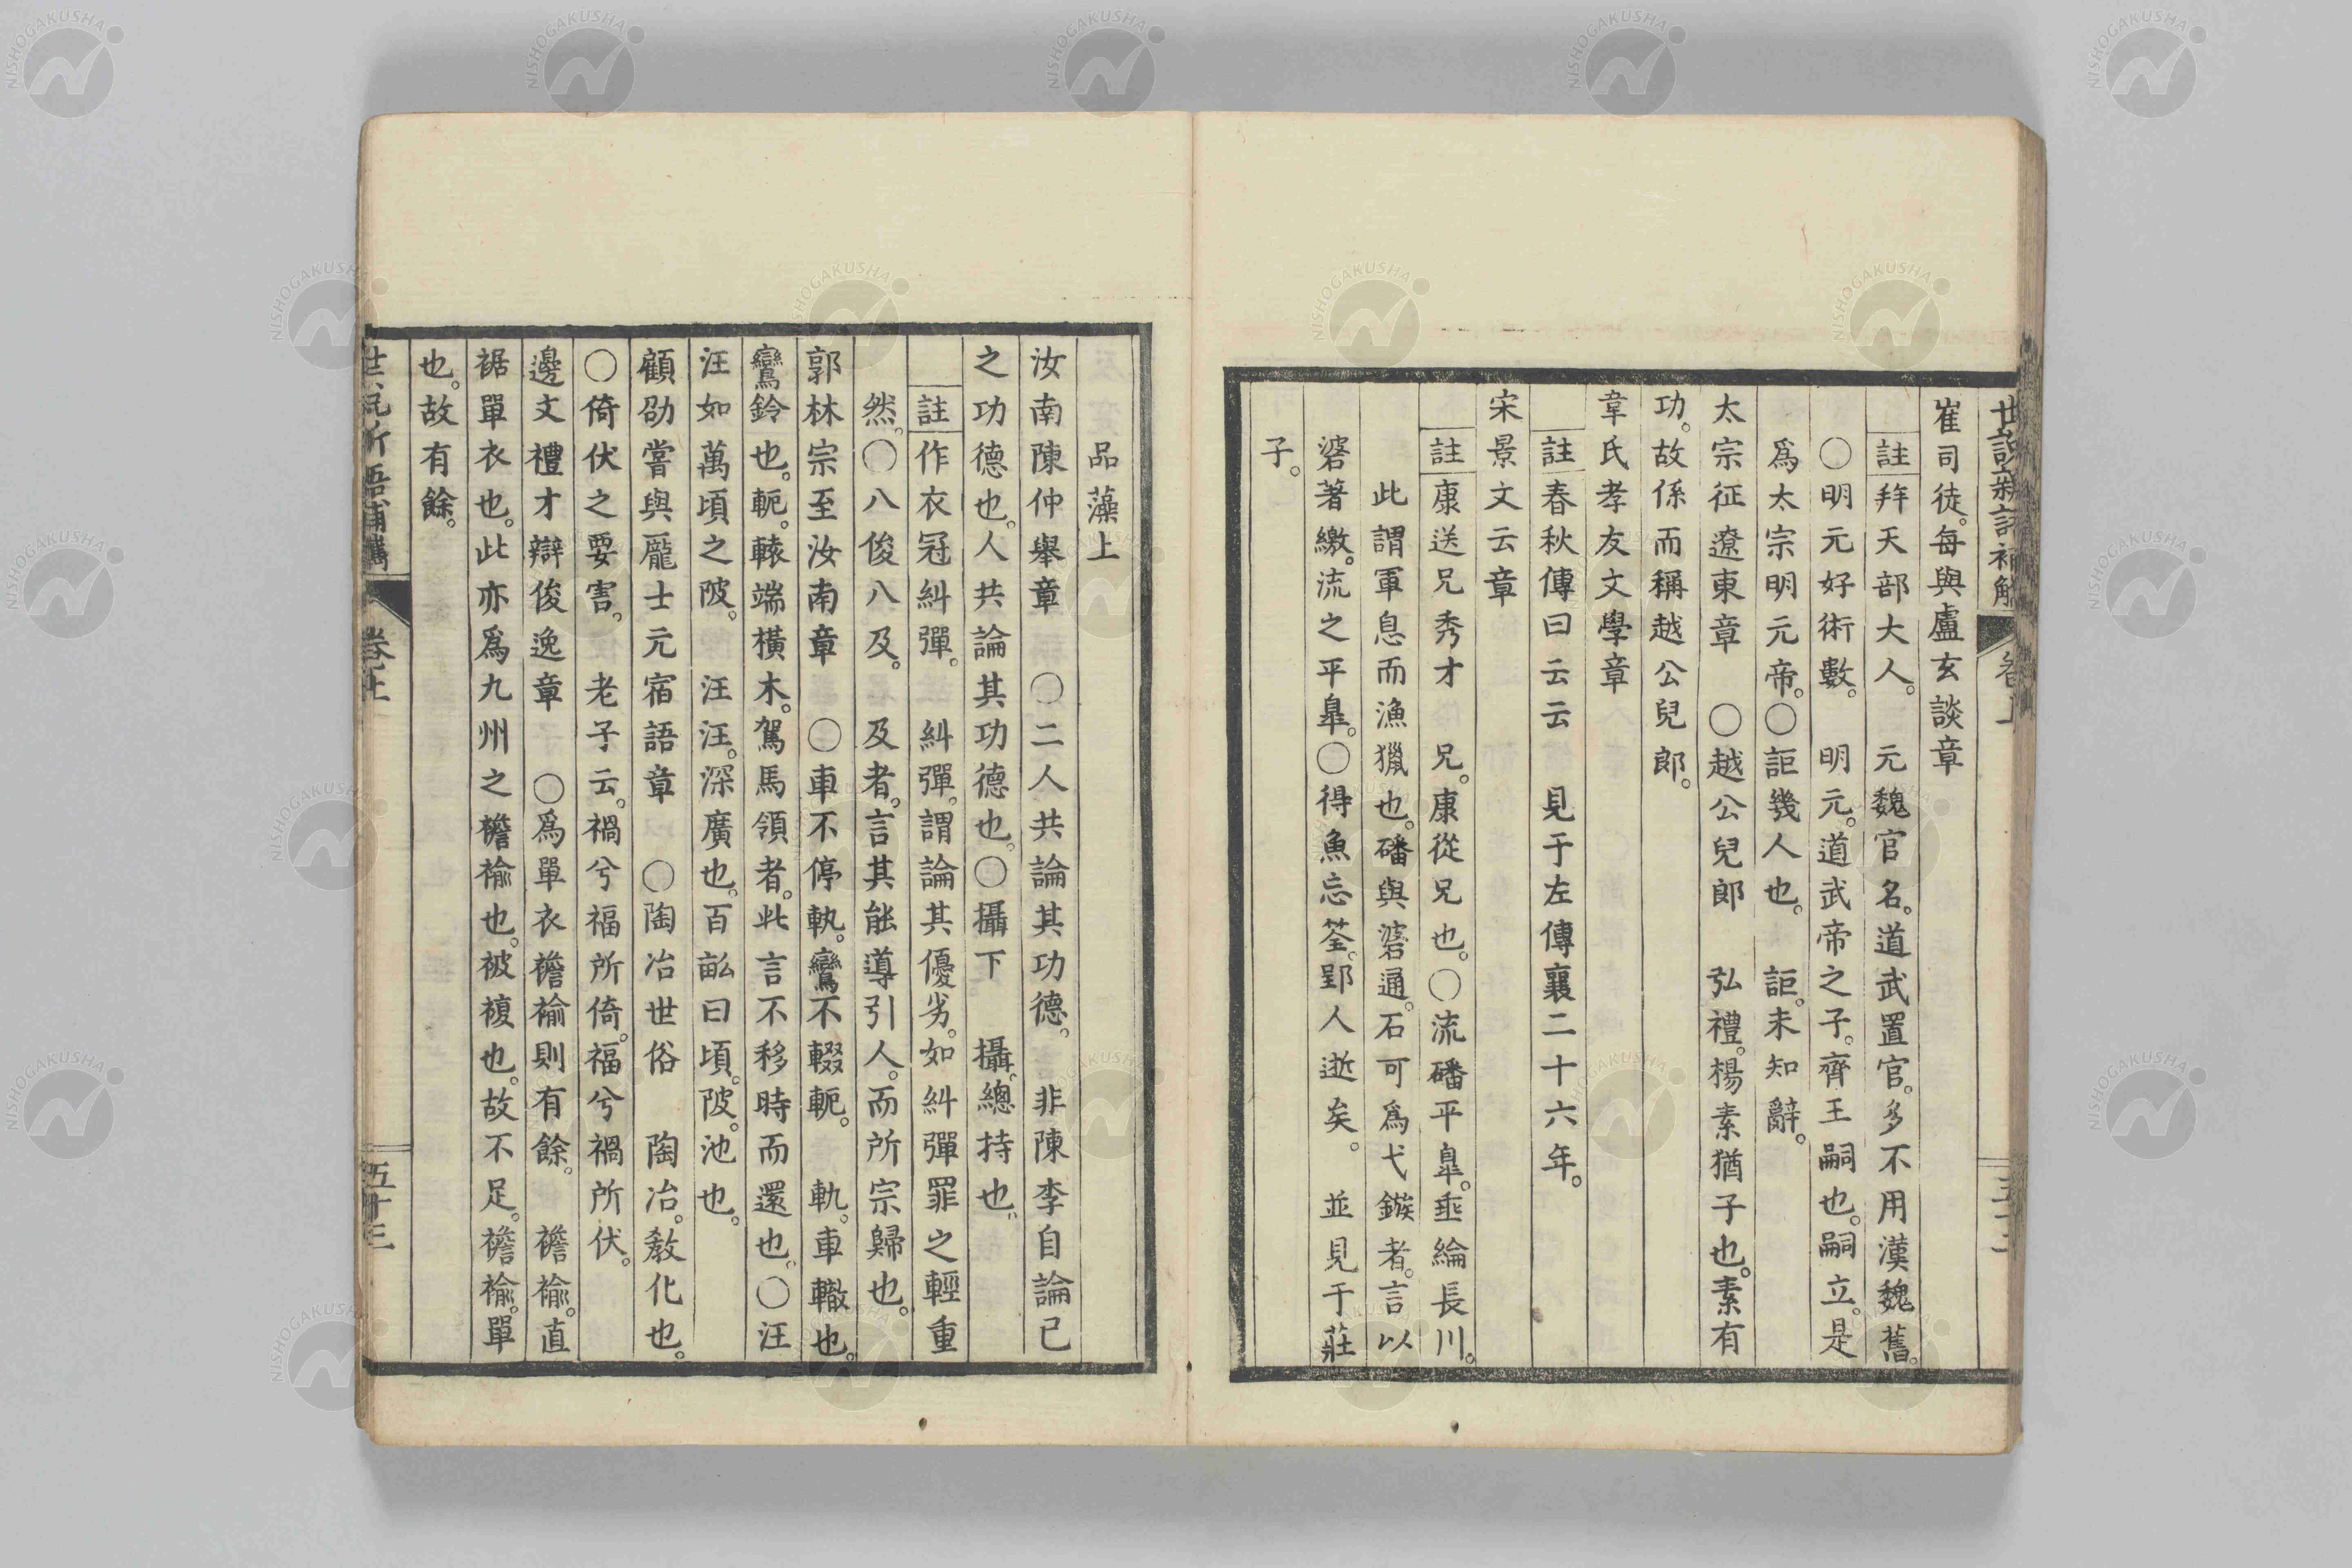 崔司徒。每與盧玄談章
註 拜天部大人。 元魏官名。道武置官。多不用漢魏舊。
〇明元好術數。 明元。道武帝之子。齊王嗣也。嗣立。是
爲太宗明元帝。〇詎幾人也。 詎。未知辭。
太宗征遼東章 〇越公兒郎 弘禮。楊素猶子也。素有
功。故係而稱越公兒郎。
韋氏孝友文學章
註 春秋傳曰云云 見于左傳襄二十六年。
宋景文云章
註 康送兄秀才 兄。康從兄也。〇流磻平皐。垂綸長川。
此謂軍息而漁獵也。磻與磻通。石可爲弋鏃者。言以
磻著繳。流之平皐。〇得魚忘筌。郢人逝矣。 並見于莊
子。
品藻上
汝南陳仲舉章 〇二人共論其功德。 非陳李自論已
之功德也。人共論其功德也。〇攝下 攝。總持也。
註 作衣冠糾彈。 糾彈。謂論其優劣。如糾彈罪之輕重
然。〇八俊八及。 及者。言其能導引人。而所宗歸也。
郭林宗至汝南章 〇車不停軌。鸞不輟軛。 軌。車轍也。
鸞鈴也。軛。轅端橫木。駕馬領者。此言不移時而還也。〇汪
汪如萬頃之陂。 汪汪。深廣也。百畝曰頃。陂。池也。
顧劭嘗與龐士元宿語章 〇陶冶世俗 陶冶。教化也。
〇倚伏之要害。 老子云。禍兮福所倚。福兮禍所伏。
邊文禮才辯俊逸章 〇爲單衣襜褕則有餘。 襜褕。直
裾單衣也。此亦爲九州之襜褕也。被複也。故不足。襜褕。單
也。故有餘。
五十三
NISHOGAKUSHA